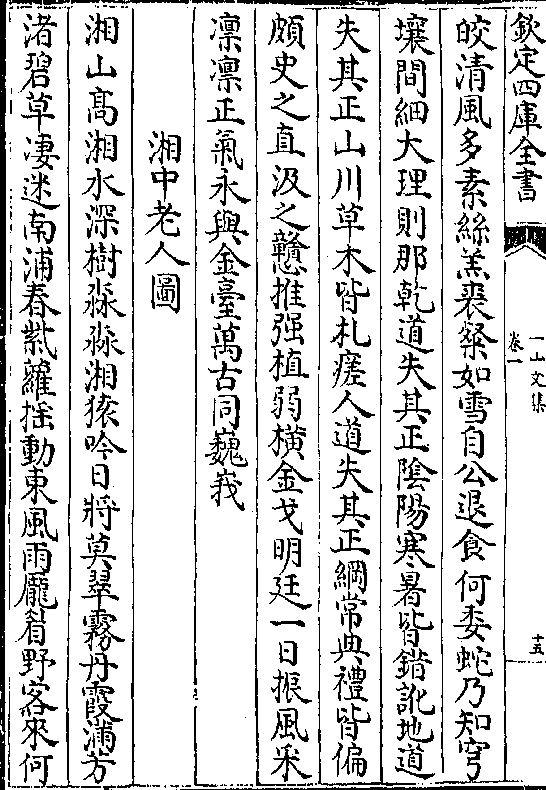 欽定四庫全書
一山文集
卷一
十五
皎清風多素絲羔裘粲如雪自公退食何委蛇乃知穹
壤間細大理則那乾道失其正陰陽寒暑皆錯訛地道
失其正山川草木皆札瘥人道失其正綱常典禮皆偏
頗史之直汲之戇推强植弱横金戈明廷一日振風采
凛凛正氣永與金臺萬古同巍峩
湘中老人圖
湘山髙湘水深樹淼淼湘猿吟日將莫翠霧丹霞滿芳
渚碧草凄迷南浦春紫蘿揺動東風雨龐眉野客來何